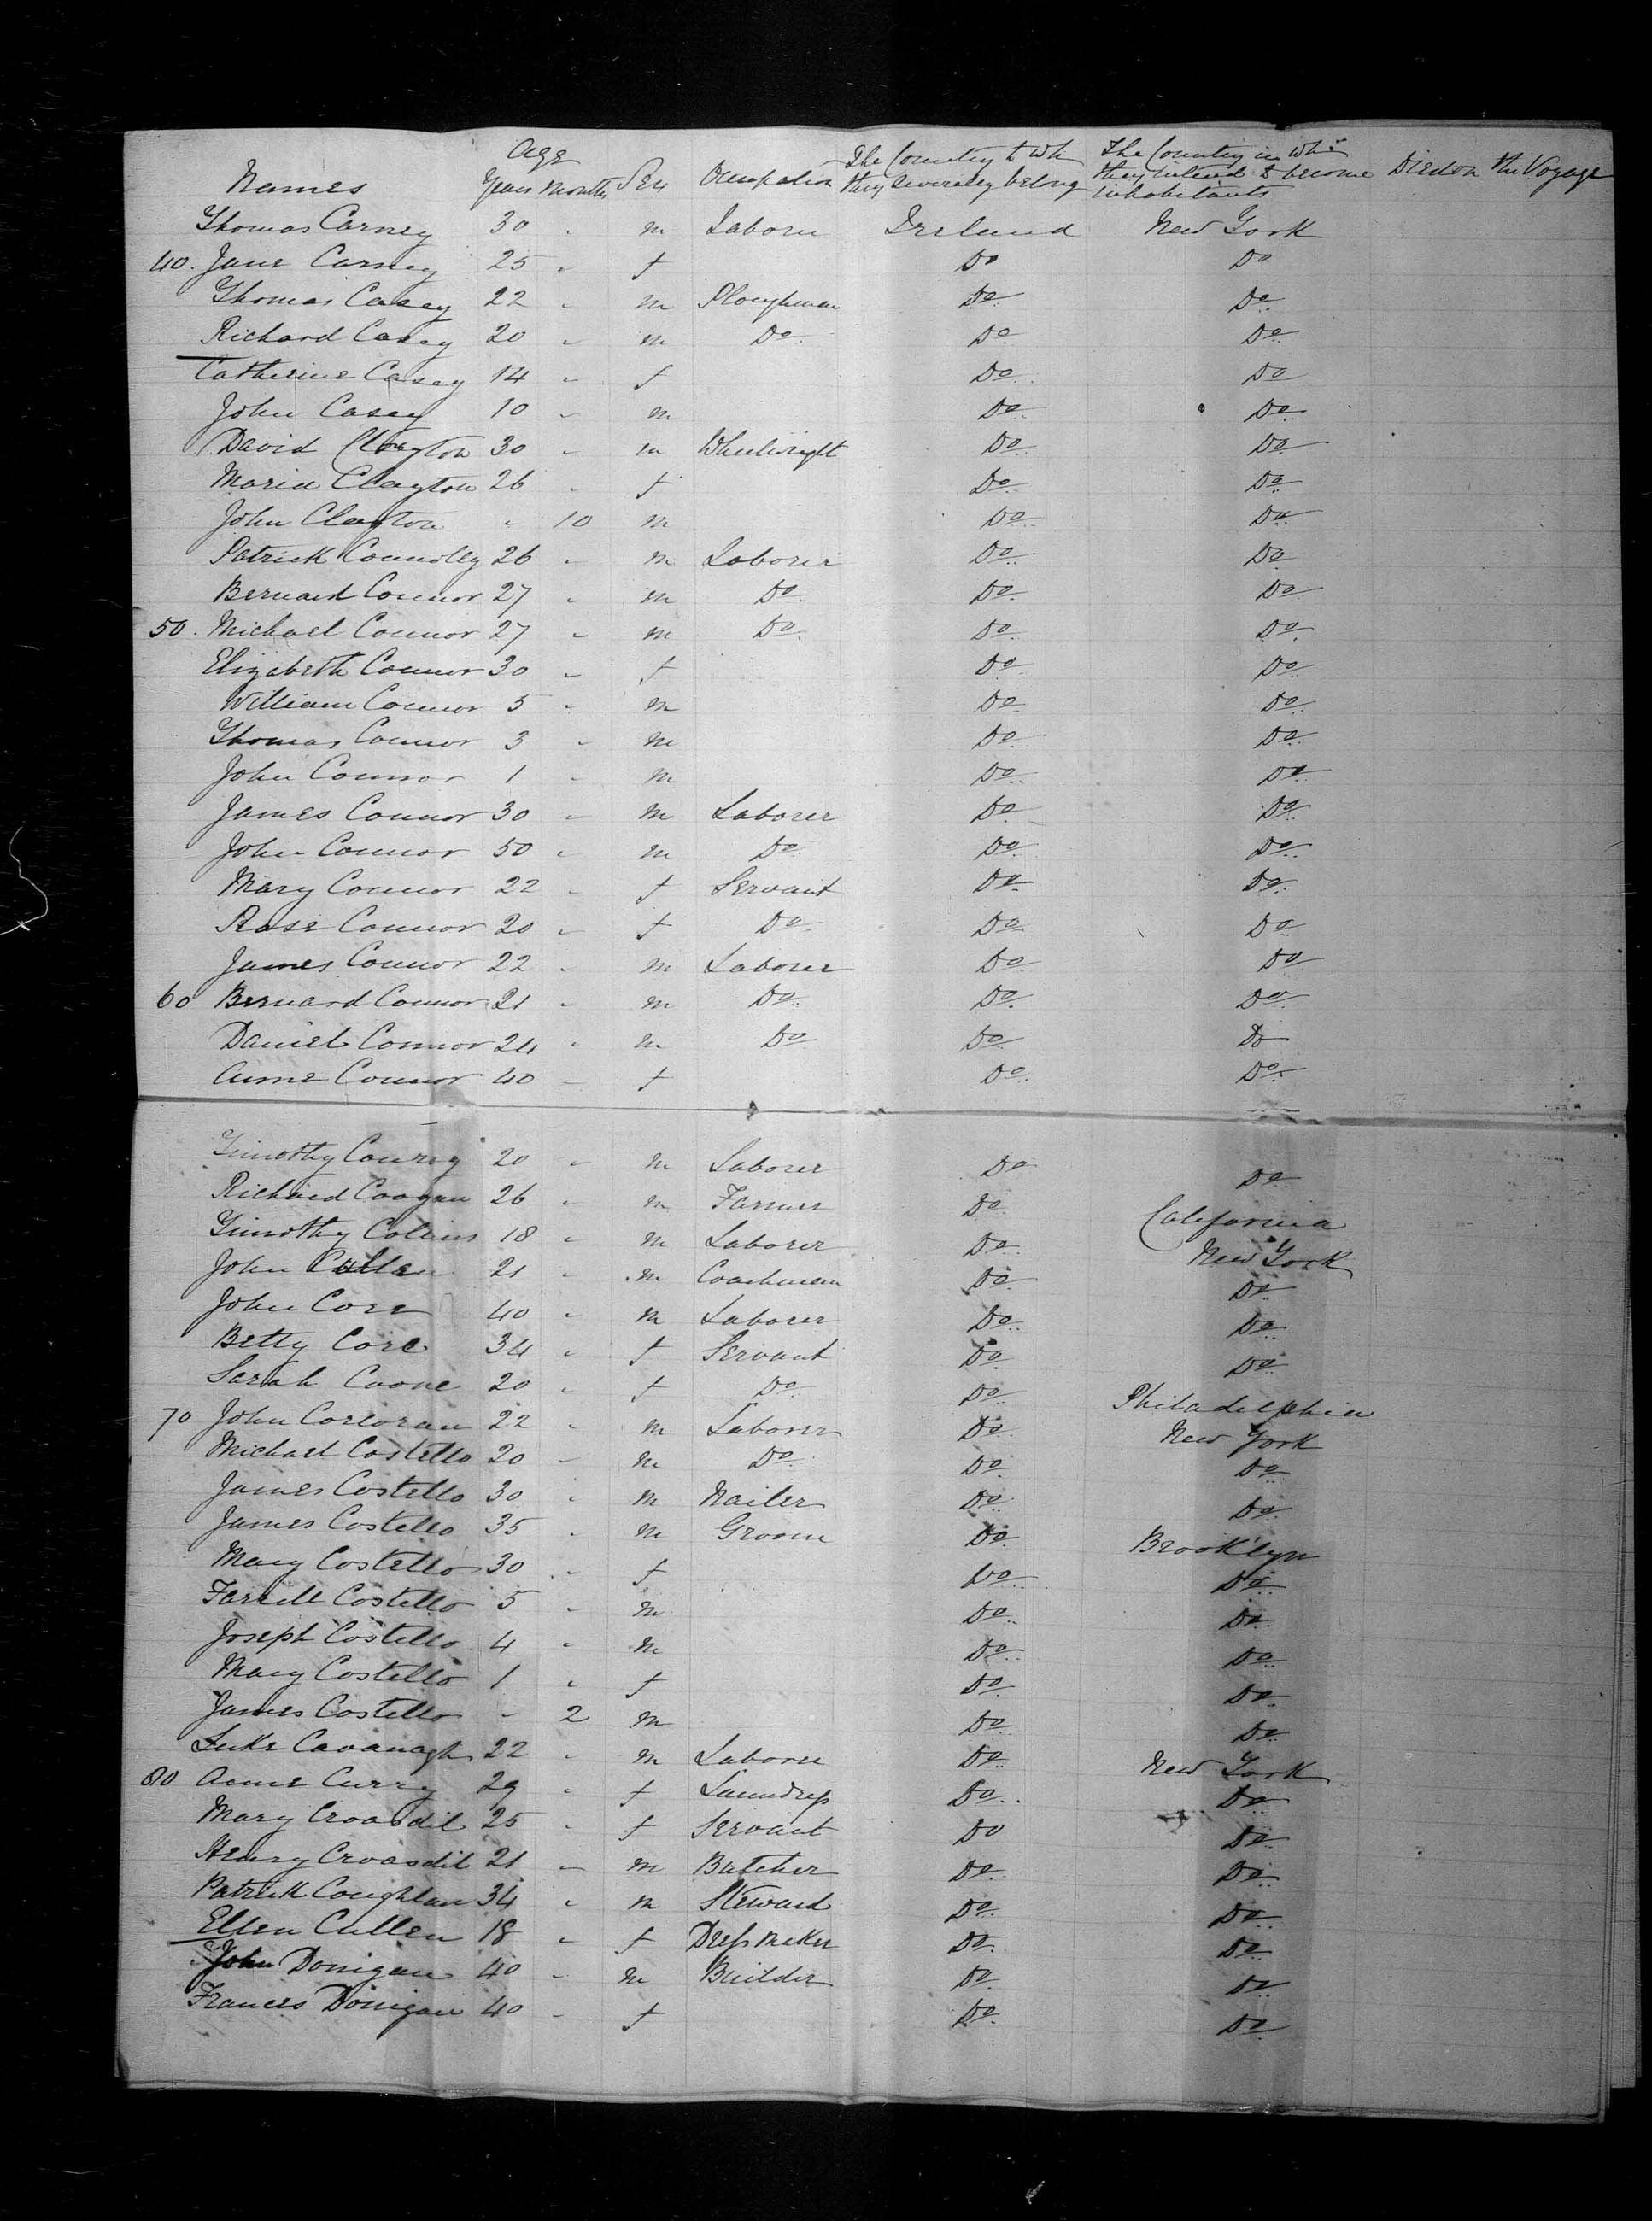 Age
Names Years Months Sex Occupation The Country to Wh they severally belong The Country in Whh they intend to become inhabitants Died on the Voyage
Thomas Carney 30 " m Laborer Ireland New York
40. Jane Carney 25 " f Do Do
Thomas Casey 22 " m Ploughman Do Do
Richard Casey 20 " m Do Do Do
Catherine Casey 14 " f Do Do
John Casey 10 " m Do Do
David Clayton 30 " m Wheelwright Do Do
Maria Clayton 26 " f Do Do
John Clayton " 10 m Do Do
Patrick Connolly 26 " m Laborer Do Do
Bernard Connor 27 " m Do Do Do
50. Michael Connor 27 " m Do Do Do
Elizabeth Connor 30 " f Do Do
William Connor 5 " m Do Do
Thomas Connor 3 " m Do Do
John Connor 1 " m Do Do
James Connor 30 " m Laborer Do Do
John Connor 50 " m Do Do Do
Mary Connor 22 " f Servant Do Do
Rose Connor 20 " f Do Do Do
James Connor 22 " m Laborer Do Do
60 Bernard Connor 21 " m Do Do Do
Daniel Connor 24 " m Do Do Do
Anne Connor 40 " f Do Do
Timothy Conroy 20 " m Laborer Do Do
Richard Coogan 26 " m Farmer Do California
Timothy Collins 18 " m Laborer Do New York
John Cullen 21 " m Coachman Do Do
John Core 40 " m Laborer Do Do
Betty Core 34 " f Servant Do Do
Sarah Coone 20 " f Do Do Philadelphia
70 John Corcoran 22 " m Laborer Do New York
Michael Costello 20 " m Do Do Do
James Costello 30 " m Nailer Do Do
James Costello 35 " m Groom Do Brooklyn
Mary Costello 30 " f Do Do
Farrell Costello 5 " m Do Do
Joseph Costello 4 " m Do Do
Mary Costello 1 " f Do Do
James Costello " 2 m Do Do
Luke Cavanagh 22 " m Laborer Do New York
80 Anne Curry 29 " f Laundress Do Do
Mary Croasdil 25 " f Servant Do Do
Henry Croasdil 21 " m Butcher Do Do
Patrick Coughlan 34 " m Steward Do Do
Ellen Cullen 18 " f Dress Maker Do Do
John Donigan 40 " m Builder Do Do
Frances Donigan 40 " f Do Do